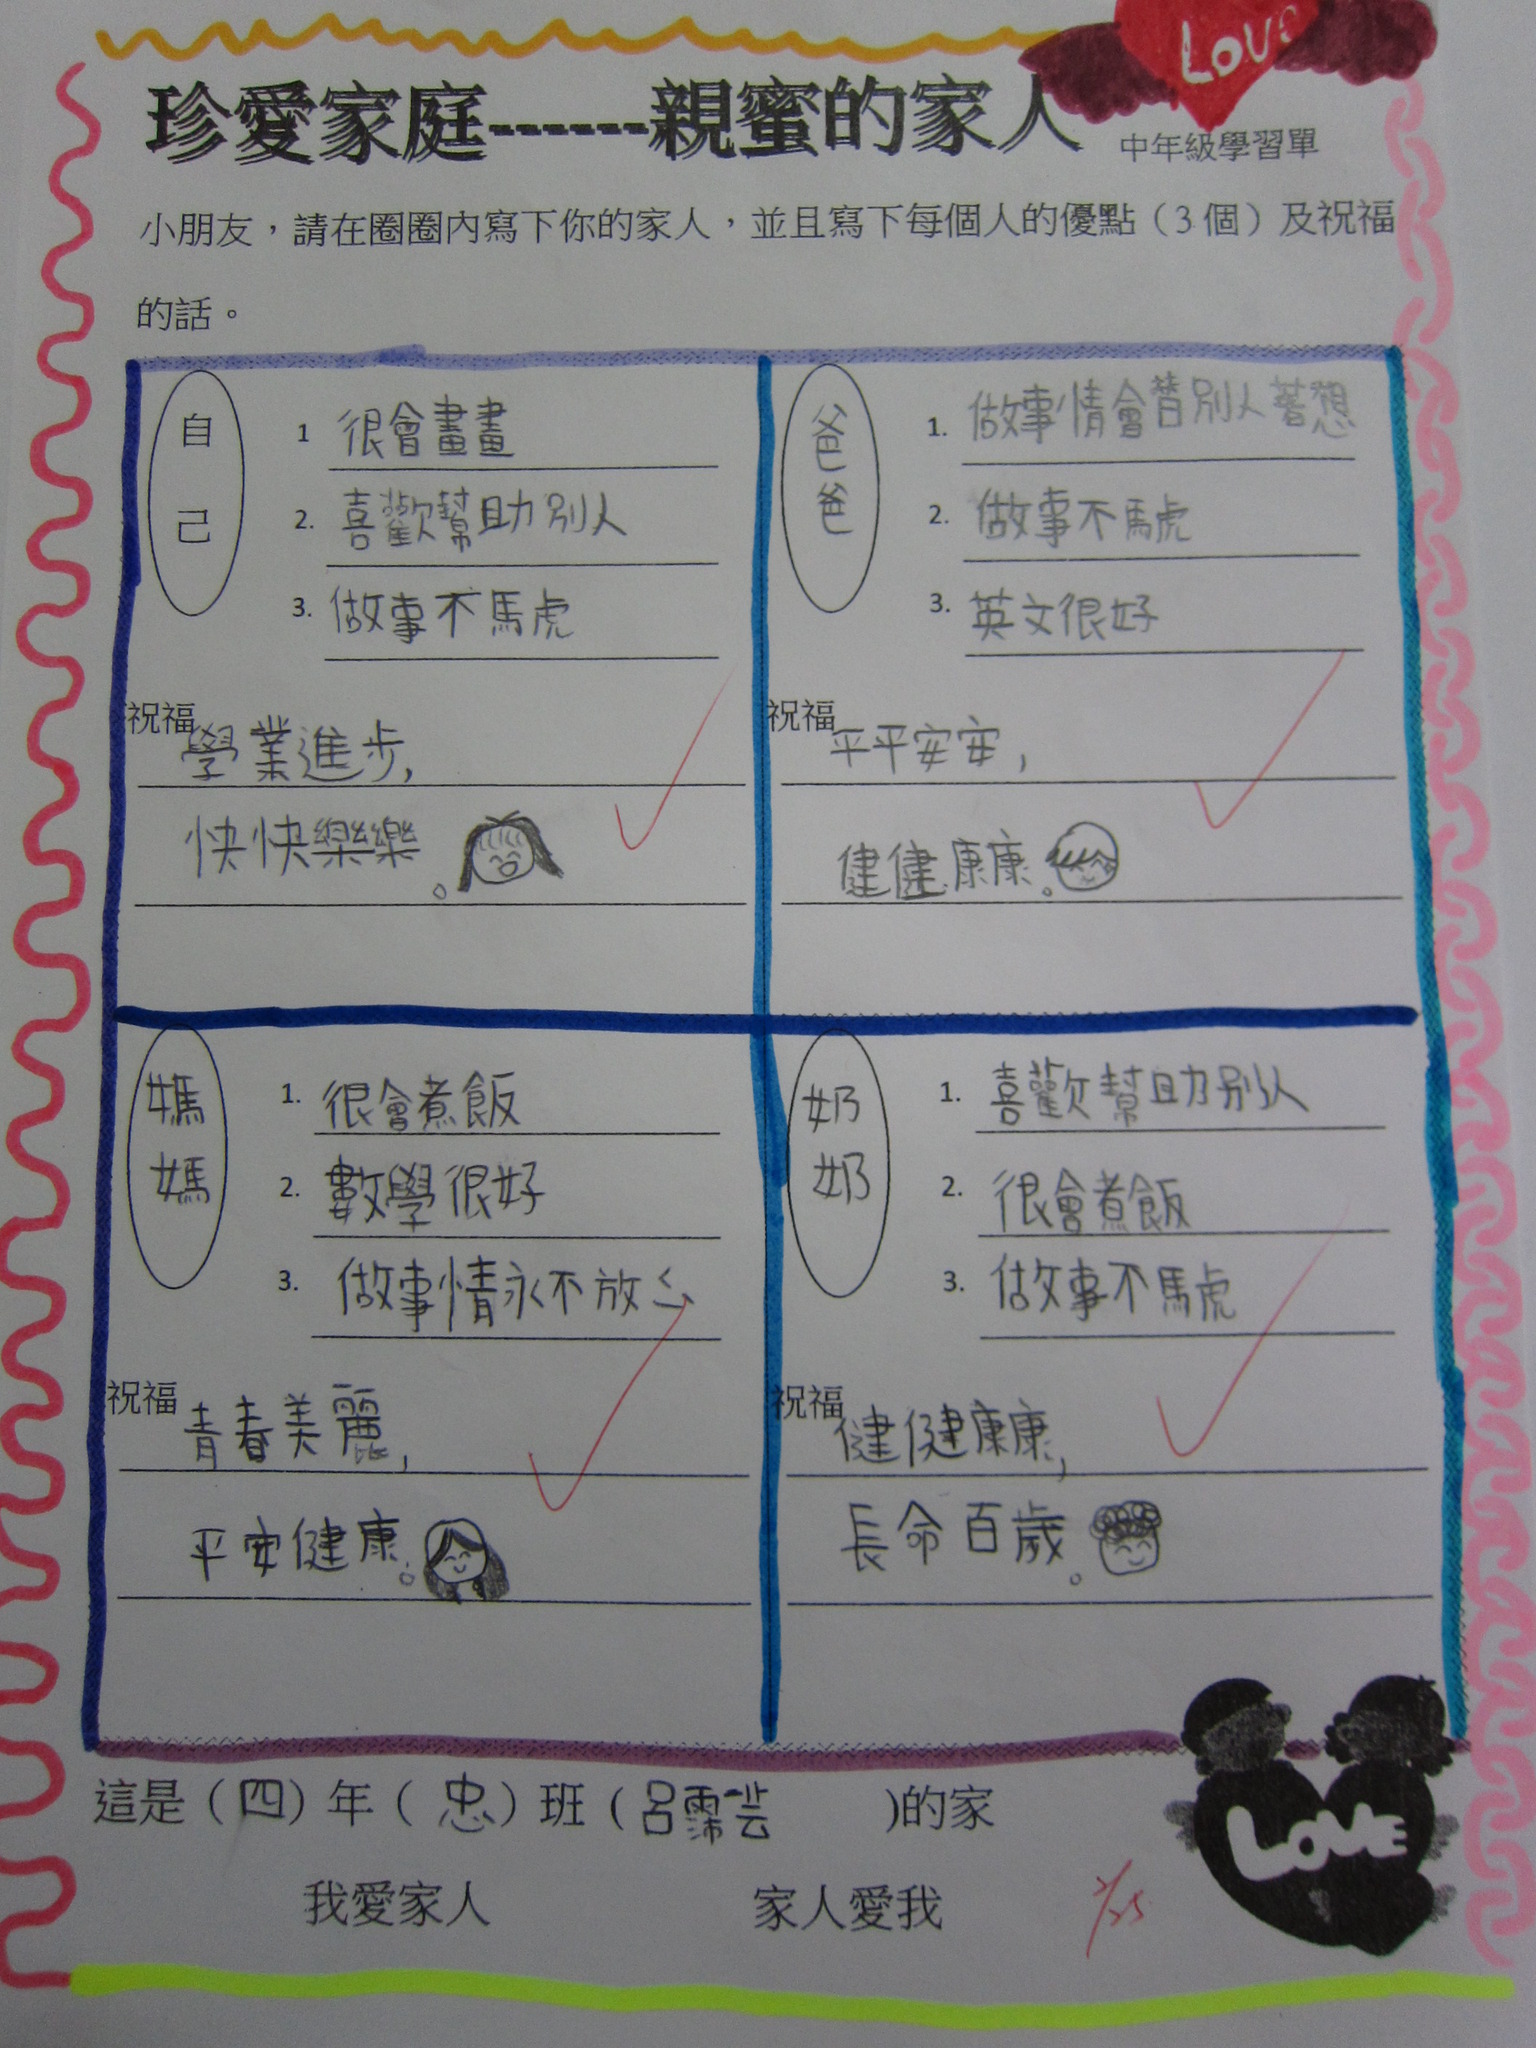 LOVE
珍愛家庭------親蜜的家人 中年級學習單
小朋友，請在圈圈內寫下你的家人，並且寫下每個人的優點（3 個）及祝福
的話。
自己
1 很會畫畫
2. 喜歡幫助別人
3. 做事不馬虎
祝福 學業進步,
快快樂樂。
爸爸
1. 做事情會替別人著想
2. 做事不馬虎
3. 英文很好
祝福 平平安安,
健健康康。
媽媽
1. 很會煮飯
2. 數學很好
3. 做事情永不放心
祝福 青春美麗,
平安健康。
奶奶
1. 喜歡幫助別人
2. 很會煮飯
3. 做事不馬虎
祝福 健健康康,
長命百歲。
這是（四）年（忠）班（呂霈芸 )的家
我愛家人 家人愛我
LOVE